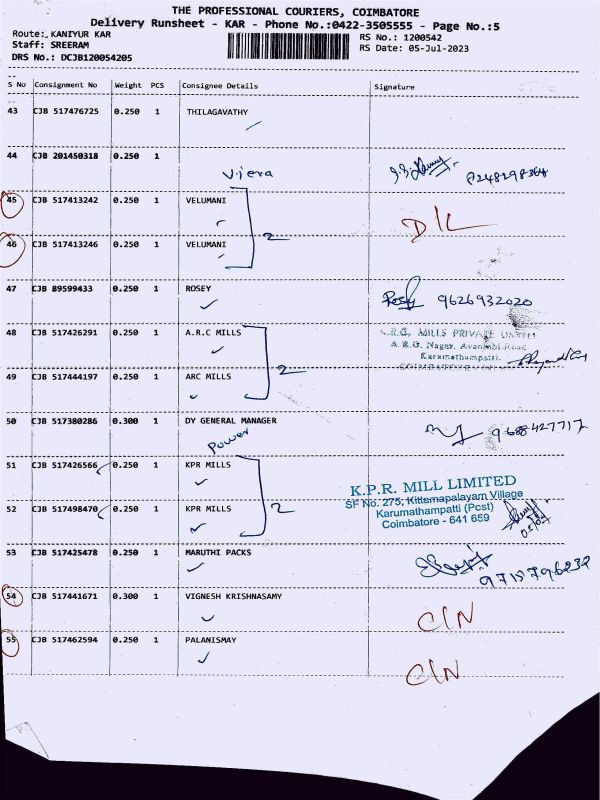 THE PROFESSIONAL COURIERS, COIMBATORE
Delivery Runsheet - KAR - Phone No.:0422-3505555 - Page No.:5
Route: KANIYUR KAR
RS No.: 1200542
Staff: SREERAM
RS Date: 05-Jul-2023
DRS No.: DCJB120054205
S No Consignment No Weight PCS Consignee Details Signature
43 CJB 517476725 0.250 1 THILAGAVATHY
44 CJB 201450318 0.250 1
Vijera
45 CJB 517413242 0.250 1 VELUMANI
D/L
2
46 CJB 517413246 0.250 1 VELUMANI
47 CJB 89599433 0.250 1 ROSEY
Rosy 9626932020
48 CJB 517426291 0.250 1 A.R.C MILLS
MILLS PRIVATE
A.R.G. Nagar, Avanashi Road
Karumathampatti.
2
49 CJB 517444197 0.250 1 ARC MILLS
50 CJB 517380286 0.300 1 DY GENERAL MANAGER
9688427717
Power
51 CJB 517426566 0.250 1 KPR MILLS
K.P.R. MILL LIMITED
SF No. 275, Kittampalayam Village
Karumathampatti (Post)
Coimbatore - 641 659
2
52 CJB 517498470 0.250 1 KPR MILLS
53 CJB 517425478 0.250 1 MARUTHI PACKS
9715796232
54 CJB 517441671 0.300 1 VIGNESH KRISHNASAMY
C/N
55 CJB 517462594 0.250 1 PALANISMAY
C/N